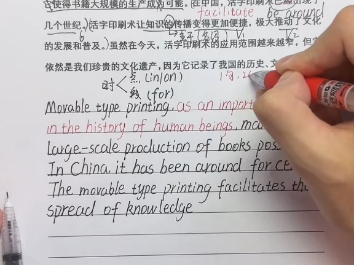 使得书籍大规模的生产成为可能。在中国,活字印刷术已经出现了
facilitate be around
几个世纪。活字印刷术让知识的传播变得更加便捷,极大推动了文化
V1 V2
的发展和普及。虽然在今天,活字印刷术的应用范围越来越窄,但
依然是我们珍贵的文化遗产,因为它记录了我国的历史、文
时 点 (in/on)
(for)
Movable type printing, as an impor
in the history of human beings, ma
large-scale production of books pos
In China, it has been around for ce
The movable type printing facilitates th
spread of knowledge